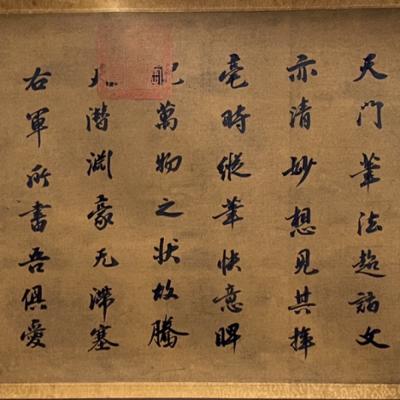 天門筆法超詣文
亦清妙想見其揮
毫時縱筆快意睥
睨萬物之狀故騰
潛淵豪无滯塞
右軍所書吾俱愛